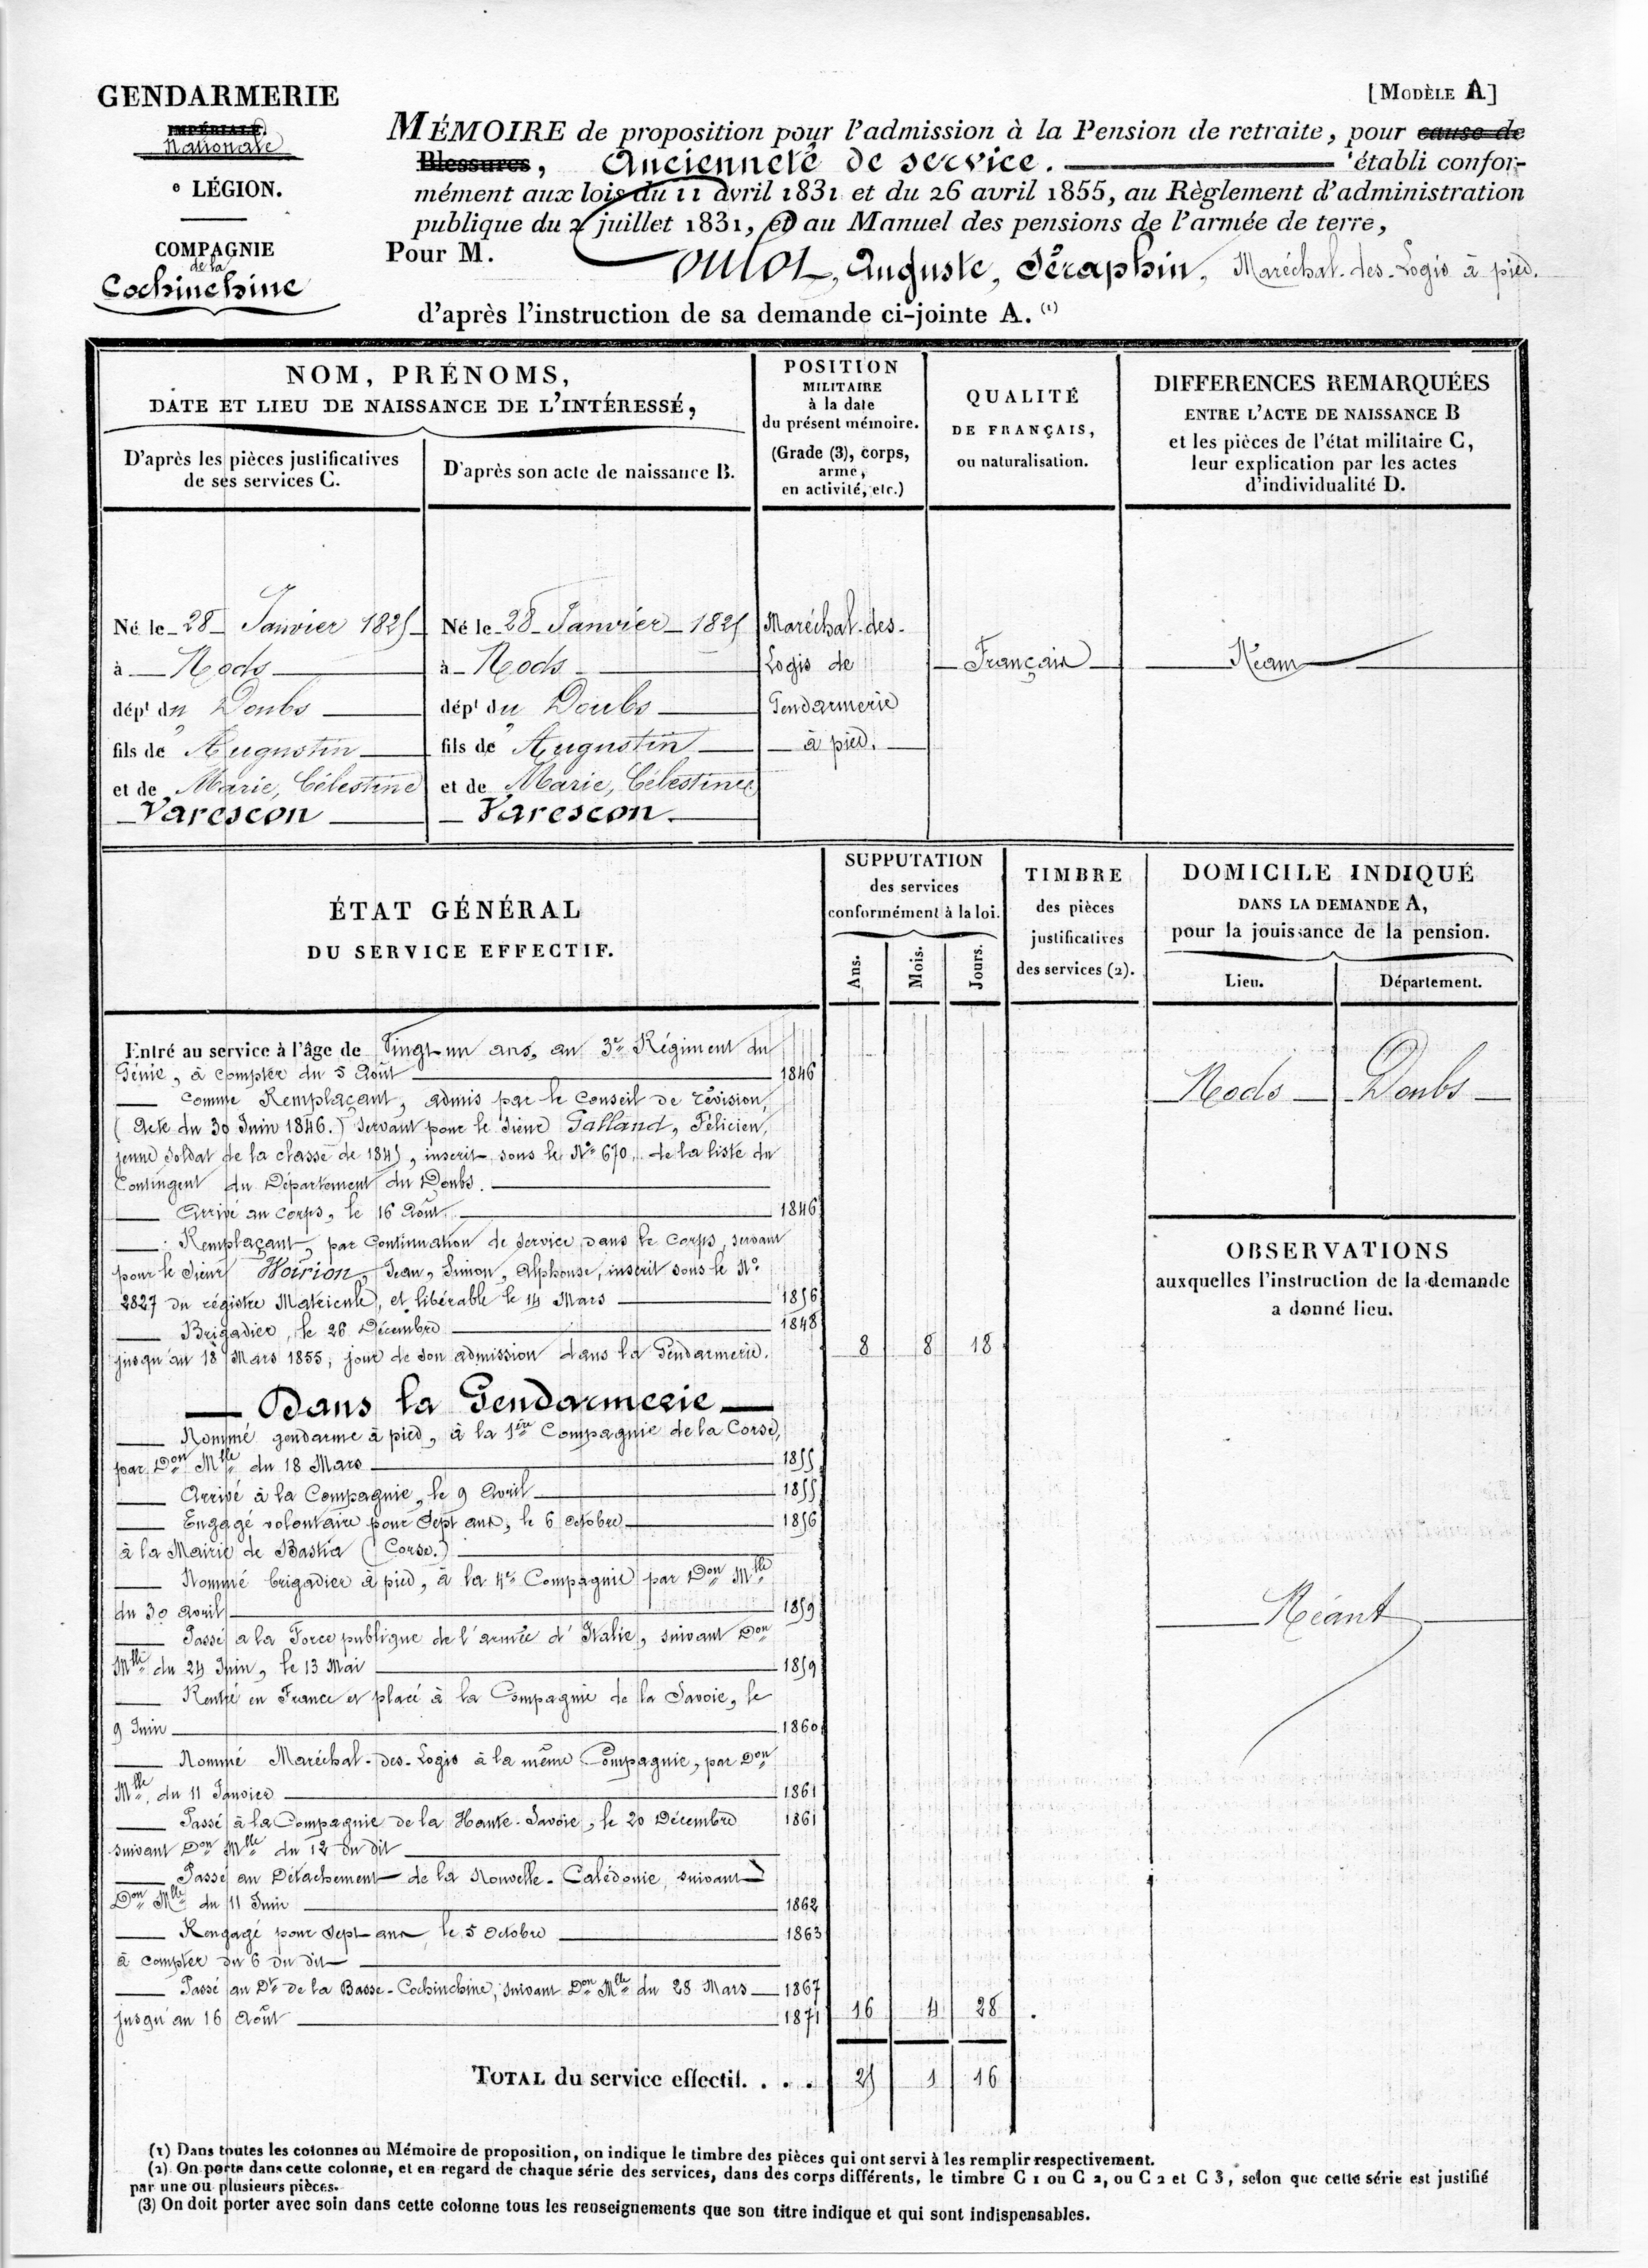 GENDARMERIE
IMPÉRIALE.
Nationale
e LÉGION.
COMPAGNIE
de la
Cochinchine
[MODÈLE A]
MÉMOIRE de proposition pour l'admission à la Pension de retraite, pour cause de
Blessures, Ancienneté de service. établi confor-
mément aux lois du 11 avril 1831 et du 26 avril 1855, au Règlement d'administration
publique du 2 juillet 1831, et au Manuel des pensions de l'armée de terre,
Pour M. Auguste, Séraphin, Maréchal-des-Logis à pied.
d'après l'instruction de sa demande ci-jointe A. (1)
NOM, PRÉNOMS,
DATE ET LIEU DE NAISSANCE DE L'INTÉRESSÉ,
D'après les pièces justificatives
de ses services C.
D'après son acte de naissance B.
POSITION
MILITAIRE
à la date
du présent mémoire.
(Grade (3), corps,
arme,
en activité, etc.)
QUALITÉ
DE FRANÇAIS,
ou naturalisation.
DIFFERENCES REMARQUÉES
ENTRE L'ACTE DE NAISSANCE B
et les pièces de l'état militaire C,
leur explication par les actes
d'individualité D.
Né le 28 Janvier 1825
à Nods
dépt du Doubs
fils de Augustin
et de Marie, Célestine
Varescon
Né le 28 Janvier 1825
à Nods
dépt du Doubs
fils de Augustin
et de Marie, Célestine
Varescon.
Maréchal-des-
Logis de
Gendarmerie
à pied.
Français
Néant
ÉTAT GÉNÉRAL
DU SERVICE EFFECTIF.
SUPPUTATION
des services
conformément à la loi.
Ans.
Mois.
Jours.
TIMBRE
des pièces
justificatives
des services (2).
DOMICILE INDIQUÉ
DANS LA DEMANDE A,
pour la jouissance de la pension.
Lieu.
Département.
Nods Doubs
OBSERVATIONS
auxquelles l'instruction de la demande
a donné lieu.
Néant
Entré au service à l'âge de Vingt-un ans, au 3e Régiment du
Génie, à compter du 5 Août 1846
Comme Remplaçant, admis par le Conseil de révision,
(Acte du 30 Juin 1846.) Servant pour le Sieur Galland, Félicien,
jeune soldat de la classe de 1845, inscrit sous le No 670, de la liste du
Contingent du Département du Doubs.
Arrivé au Corps, le 16 Août 1846
Remplaçant, par Continuation de service dans le Corps, servant
pour le Sieur Voirion, Jean, Simon, Alphonse, inscrit sous le No
2827 du régistre Matricule, et libérable le 14 Mars 1856
Brigadier, le 26 Décembre 1848
jusqu'au 18 Mars 1855, jour de son admission dans la Gendarmerie. 8 8 18
Dans la Gendarmerie
Nommé gendarme à pied, à la 1ère Compagnie de la Corse,
par Don Mlle du 18 Mars 1855
Arrivé à la Compagnie, le 9 Avril 1855
Engagé volontaire pour Sept ans, le 6 Octobre 1856
à la Mairie de Bastia (Corse.)
Nommé brigadier à pied, à la 4e Compagnie par Don Mlle
du 30 Avril 1859
Passé à la Force publique de l'armée d'Italie, suivant Don
Mlle du 24 Juin, le 13 Mai 1859
Rentré en France et placé à la Compagnie de la Savoie, le
9 Juin 1860
Nommé Maréchal-des-Logis à la même Compagnie, par Don
Mlle. du 11 Janvier 1861
Passé à la Compagnie de la Haute-Savoie, le 20 Décembre 1861
suivant Don Mlle du 12 du dit
Passé au Détachement de la Nouvelle-Calédonie, suivant
Don Mlle du 11 Juin 1862
Rengagé pour Sept ans, le 5 Octobre 1863
à compter du 6 du dit
Passé au Dt de la Basse-Cochinchine, suivant Don Mlle du 28 Mars 1867
jusqu'au 16 Août 1871 16 4 28
TOTAL du service effectif. . . . 25 1 16
(1) Dans toutes les colonnes du Mémoire de proposition, on indique le timbre des pièces qui ont servi à les remplir respectivement.
(2) On porte dans cette colonne, et en regard de chaque série des services, dans des corps différents, le timbre C 1 ou C 2, ou C 2 et C 3, selon que cette série est justifié
par une ou plusieurs pièces.
(3) On doit porter avec soin dans cette colonne tous les renseignements que son titre indique et qui sont indispensables.